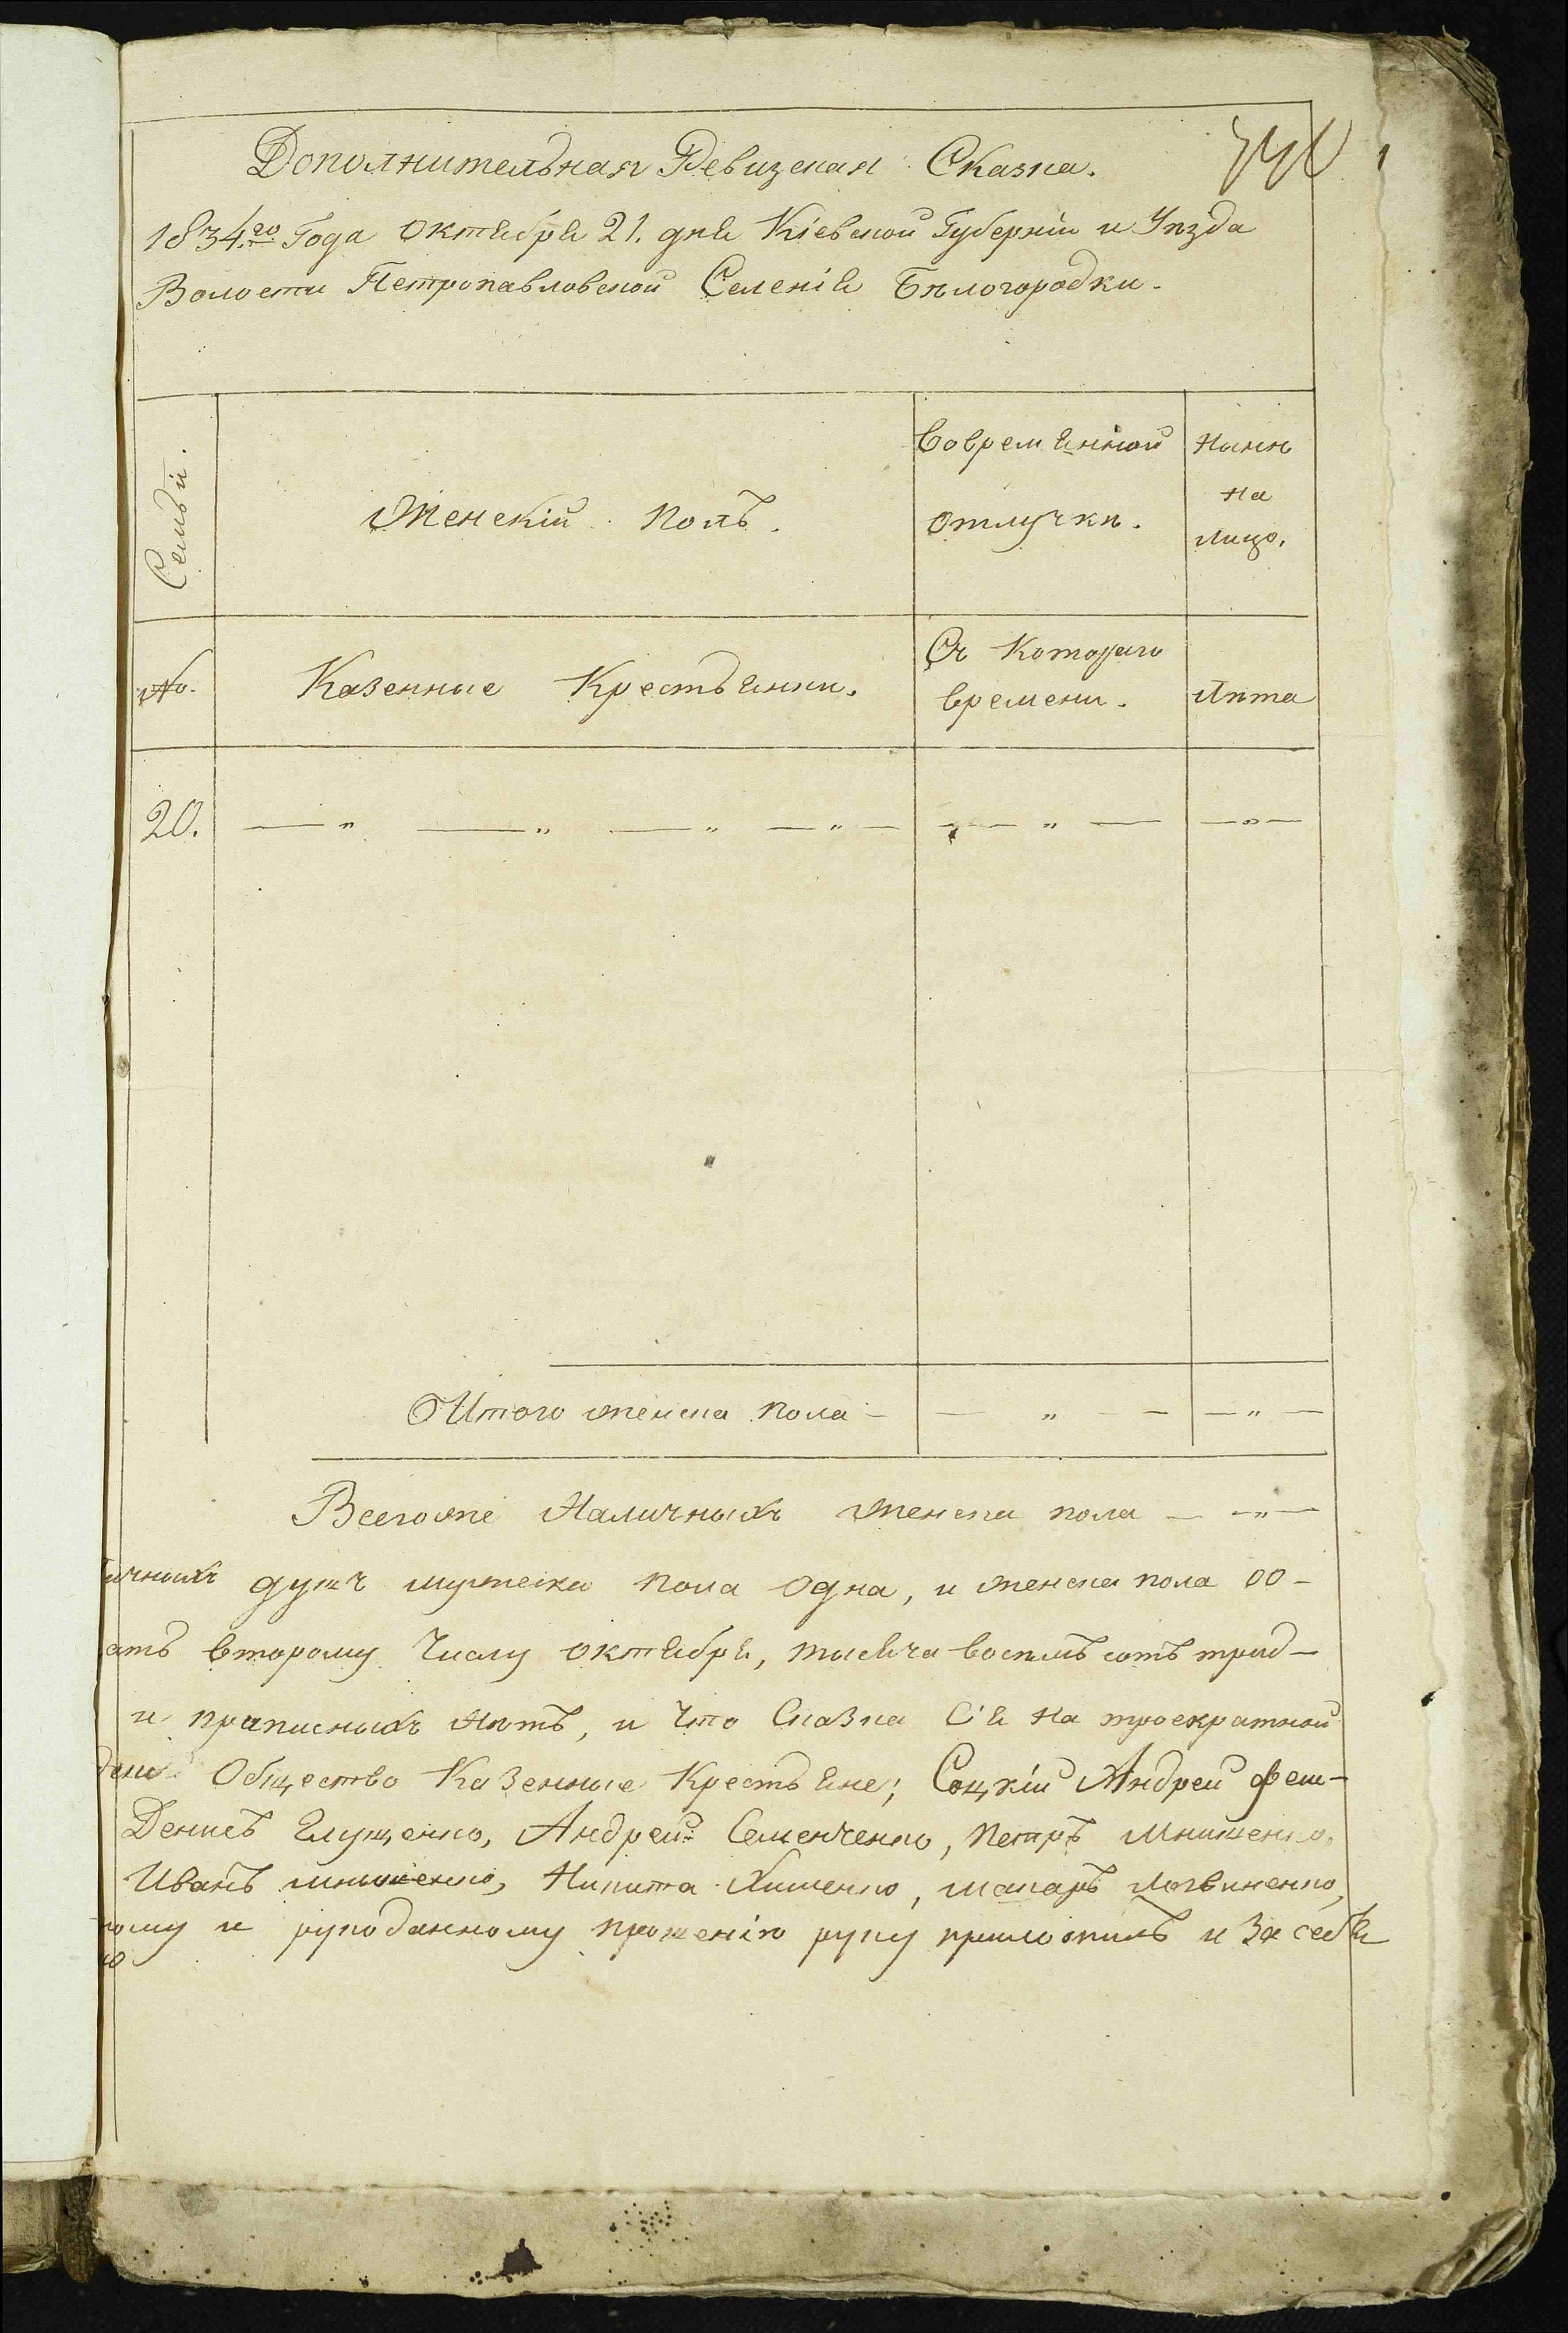 Дополнительная Ревизская Сказка.
1834го Года Октября 21. дня Кіевской Губерніи и Уѣзда
Волости Петропавловской Селенія Бѣлогородки.
Семьи.
Женскій Полъ.
Вовременной отлучкѣ.
Нынѣ на лицо.
№.
Казенные Крестьянки.
Съ Котораго времени.
Лѣта
20. — „ — „ — „ — „ — — „ — — „ —
Итого женска пола — — „ — — — „ —
Всегоже Наличныхъ женска пола — — „ —
ичныхъ душъ мужеска пола одна, и женска пола 00 —
ать второму Числу октября, тысяча восемь сотъ трид—
и прописныхъ нѣтъ, и Что Сказка Сія на троекратной
Общество Казенные Крестьяне; Соцкій Андрей Феш—
Денисъ Глущенко, Андрей Семенченко, Петръ
Иванъ Никита Хименко, Макаръ Логвиненко,
ному и рукоданному прошенію руку приложилъ и За себя